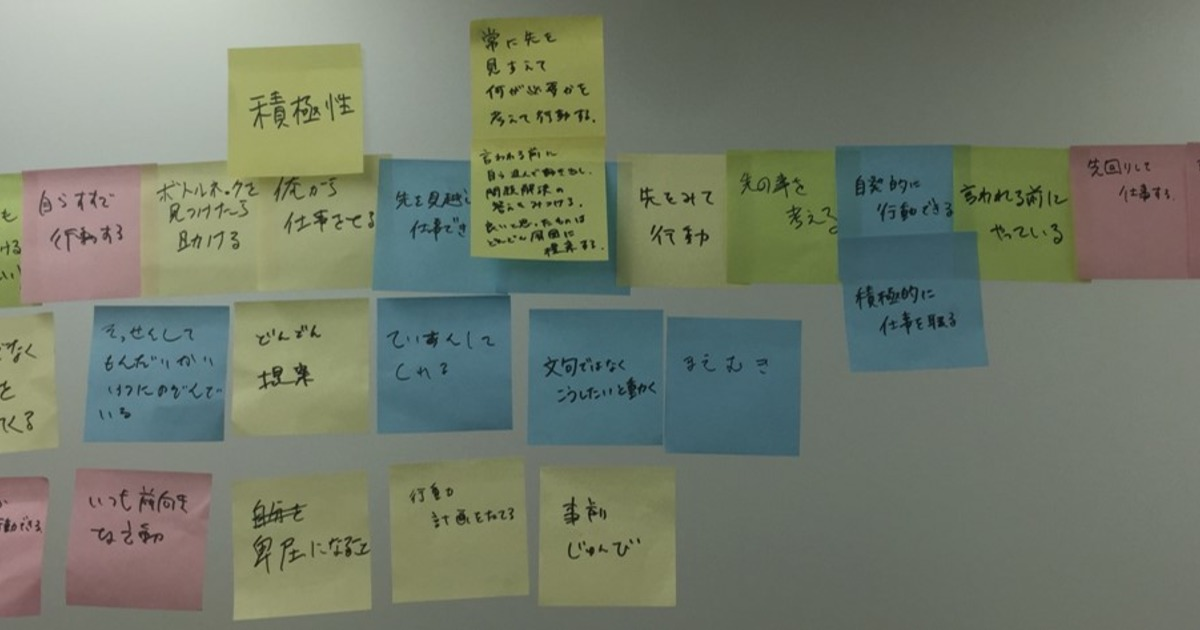 積極性
常に先を
見すえて
何が必要かを
考えて行動する。
言われる前に
自ら進んで動き出し、
問題解決の
答えをみつける。
良いと思ったものは
どんどん周囲に
提案する。
も
ける
い!
自らすすで
行動する
ボトルネックを
見つけたら
助ける
俺から
仕事をせる
先を見越し
仕事でき
先をみて
行動
先の事を
考える
自発的に
行動できる
言われる前に
やっている
先回りして
仕事する。
積極的に
仕事を取る
でなく
を
てくる
そっせんして
もんだいかい
けつにのぞんで
いる
どんどん
提案
ていあんして
くれる
文句ではなく
こうしたいと動く
まえむき
か
動できる
いつも前向き
な言動
自分を
卑屈になること
行動
計画をたてる
事前
じゅんび